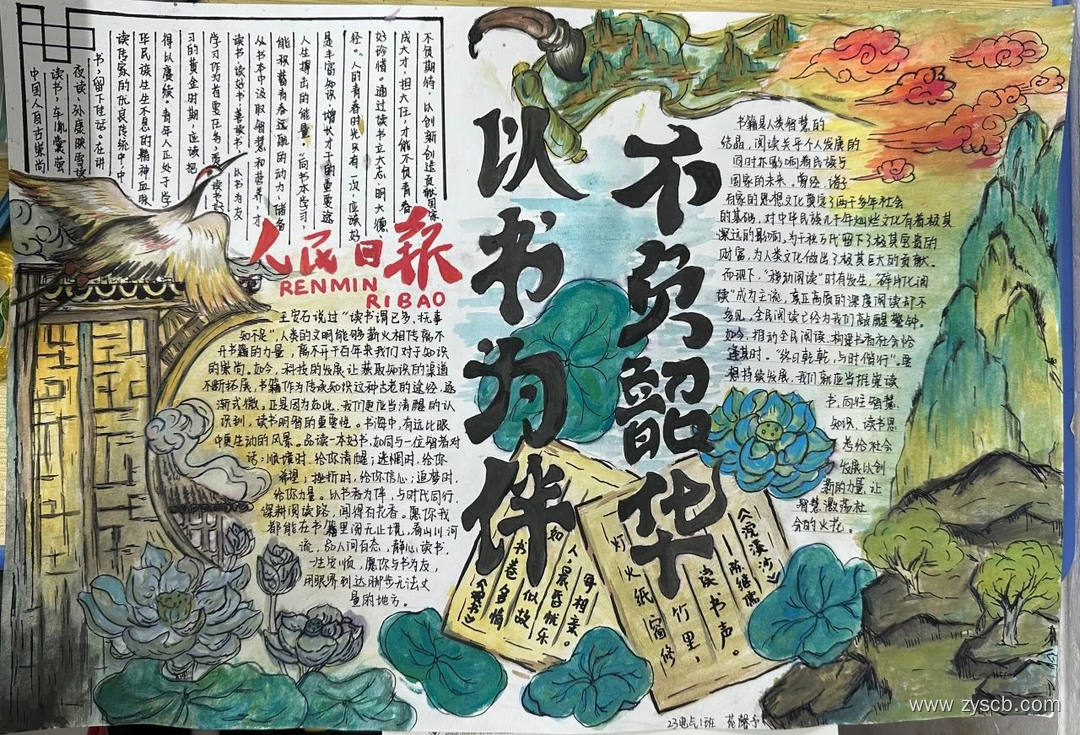 以书为伴
不负韶华
人民日报
RENMIN
RIBAO
中国人自古崇尚
读书，车胤囊萤
夜读、孙康映雪读
书，留下佳话。在讲
读传家的优良传统中，中
华民族生生不息的精神血脉
得以赓续。青年人正处于学
习的黄金时期，应该把
学习作为首要任务，
读书、读好书、善读书，以书为友
从书本中汲取智慧和营养，才
能积蓄青春远航的动力，储备
人生搏出的能量。“向书本学习，
是丰富知识、增长才干的重要途
径。”人的青春时光只有一次，应该好
好珍惜。通过读书立大志、明大德
成大才、担大任，才能不负青春
不负期待，以创新创造贡献国家
王安石说过“读书谓已多，抚事
知不足”，人类的文明能够薪火相传离不
开书籍的力量，离不开千百年来我们对于知识
的崇尚。如今，科技的发展让获取知识的渠道
不断拓展，书籍作为传承知识这种古老的途径，逐
渐式微。正是因为如此，我们更应当清醒的认
识到，读书明智的重要性。书海中，有远比眼
中更生动的风景。品读一本好书，如同与一位智者对
话：顺境时，给你清醒；逆境时，给你
希望；挫折时，给你信心；追梦时，
给你力量。以书香为伴，与时代同行，
深耕阅读路，闻得百花香。愿你我
都能在书籍里阅无止境，看山川河
流，品人间百态，静心读书，
注定收，愿你与书为友，
用眼界到达脚步无法丈
量的地方。
书籍是人类智慧的
结晶，阅读关乎个人发展的
同时亦影响着民族与
国家的未来。曾经，诸子
百家的思想文化奠定了两千多年社会
的基础，对中华民族几千年灿烂文化有着极其
深远的影响，为千秋万代留下了极其宝贵的
财富，为人类文化做出了极其巨大的贡献。
而现下，“移动阅读”时有发生，“碎片化阅
读”成为主流，真正高质的深度阅读却不
多见，全民阅读已经为我们敲醒警钟。
如今，推动全民阅读、构建书香社会恰
逢其时。“终日乾乾，与时偕行”。要
想持续发展，我们就应当推崇读
书，向往智慧、
知识，让读书思
考给社会
发展以创
新的力量，让
智慧激荡社
会的火花。
《观书》
书卷多情
似故
人，晨昏忧乐
每相亲。
《浣溪沙》
——陈继儒
读书声。
竹里，
灯火纸窗修
23电气1班
www.zyscb.com